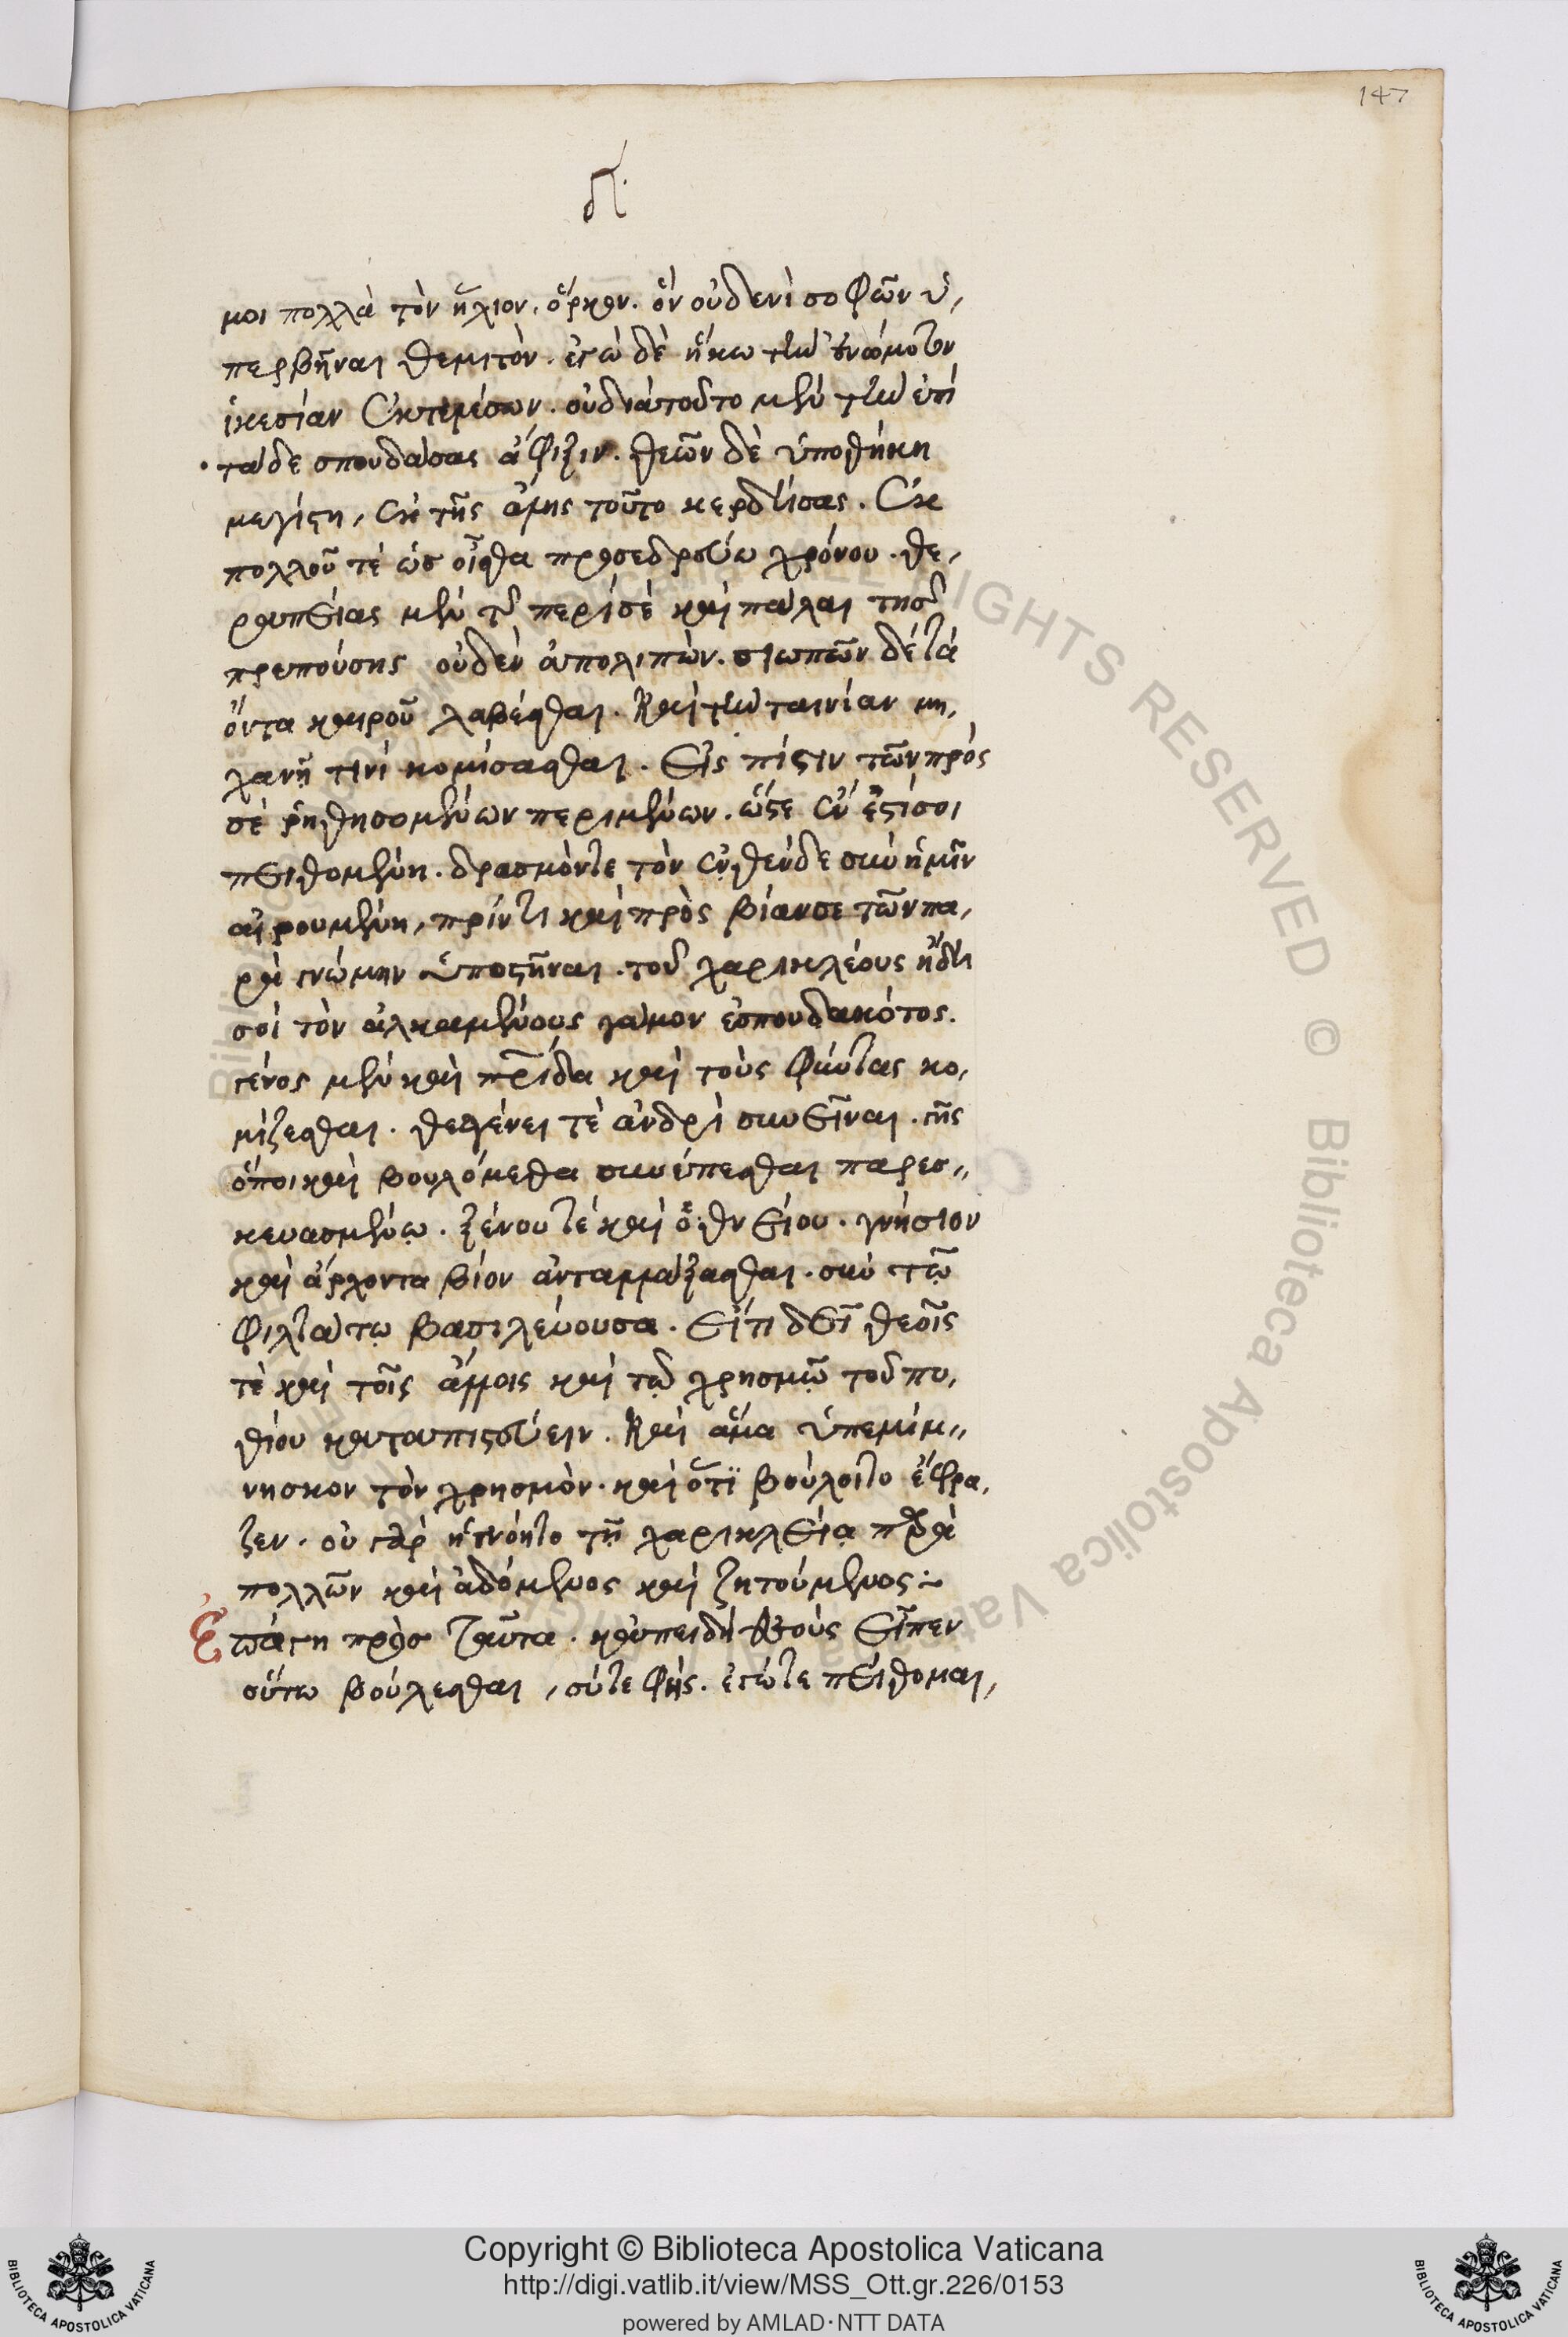 147
δ´.
μοι πολλὰ τὸν ἥλιον. ὅρκον. ὃν οὐδενὶ σοφῶν ὑ,
περβῆναι θεμιτὸν. ἐγὼ δὲ ἥκω τὴν ἐνώμοτον
ἱκεσίαν ἐκτελέσων. οὐ διὰ τοῦτο μὲν τὴν ἐπὶ
τάδε σπουδάσας ἄφιξιν. θεῶν δὲ ὑποθήκη
μεγίστη, ἐκ τῆς ἄλης τοῦτο κερδήσας. ἐκ
πολλοῦ τὲ ὡς οἶσθα προσεδρεύω χρόνου. θε,
ραπείας μὲν τῆς περὶ σὲ καὶ πάλαι τῆς
πρεπούσης οὐδὲν ἀπολιπὼν. σιωπῶν δὲ τὰ
ὄντα καιροῦ λαβέσθαι. καὶ τὴν ταινίαν μη,
χανῆ τινὶ κομίσασθαι. εἰς πίστιν τῶν πρὸς
σὲ ῥηθησομένων περιμένων. ὥστε ἔνεστί σοι
πειθομένη. δρασμόν τε τὸν ἐνθένδε σὺν ἡμῖν
αἱρουμένη, πρίν τι καὶ πρὸς βίαν σε τῶν πα,
ρὰ γνώμην ὑποστῆναι. τοῦ χαρικλέους ἤδη
σοὶ τὸν ἀλκαμένους γάμον ἐσπουδακότος.
γένος μὲν καὶ πρίδα καὶ τοὺς φύντας κο,
μίζεσθαι. θεαγένει τὲ ἀνδρὶ συνεῖναι. γῆς
ὅποι καὶ βουλόμεθα συνέπεσθαι παρεσ,,
κευασμένῳ. ξένου τὲ καὶ ὀθνείου. γνήσιον
καὶ ἄρχοντα βίον ἀνταλλάξασθαι. σὺν τῷ
φιλτάτῳ βασιλεύουσα. εἴ τι δεῖ θεοῖς
τὲ καὶ τοῖς ἄλλοις καὶ τῷ χρησμῷ τοῦ πυ,
θίου καταπιστεύειν. καὶ ἅμα ὑπεμίμ,,
νησκον τὸν χρησμὸν. καὶ ὅτι βούλοιτο ἔφρα,
ζεν. οὐ γὰρ ἠγνόητο τῇ χαρικλείᾳ παρὰ
πολλῶν καὶ ἀδόμενος καὶ ζητούμενος:~
Ἐπάγη πρὸς ταῦτα. κἀπειδὴ θεοὺς εἶπεν
οὕτω βούλεσθαι, σύ τε φῄς. ἐγώ τε πείθομαι,
Copyright © Biblioteca Apostolica Vaticana
http://digi.vatlib.it/view/MSS_Ott.gr.226/0153
powered by AMLAD·NTT DATA